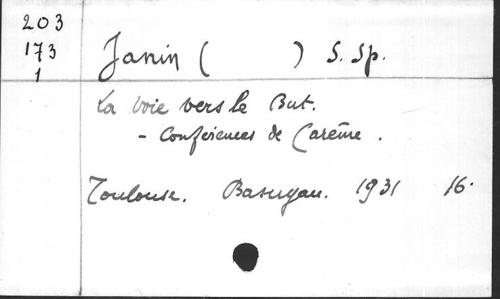 203
173
1
Janin ( ) S. Sp.
La voie vers le But.
- Conférences de Carême.
Toulouse. Basuyau. 1931 16.